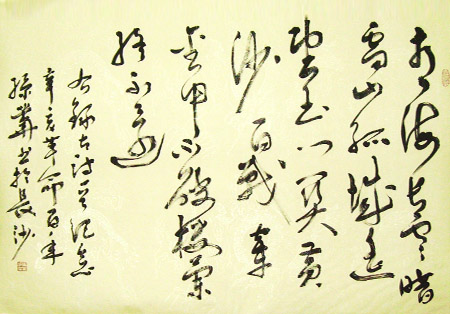 青海长雲暗
雪山孤城遥
望玉门关黄
沙百戰穿
金甲不破楼蘭
终不还
右録古诗一首纪念
辛亥革命百年
书於長沙